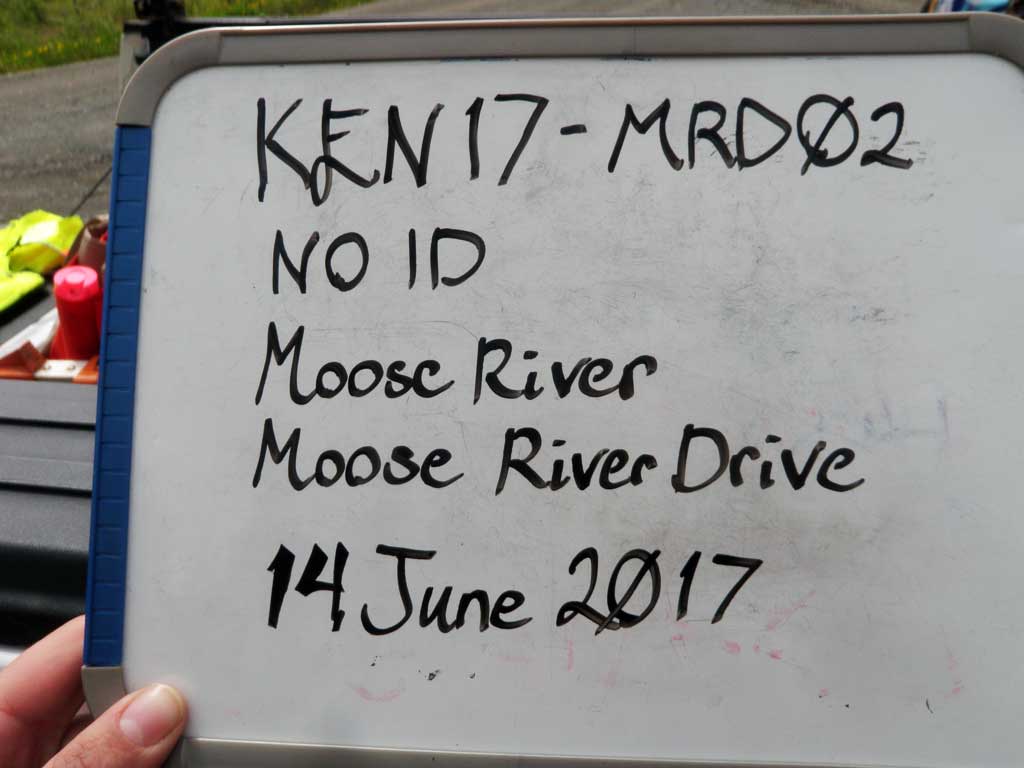 KEN17-MRD02
NO ID
Moose River
Moose River Drive
14 June 2017